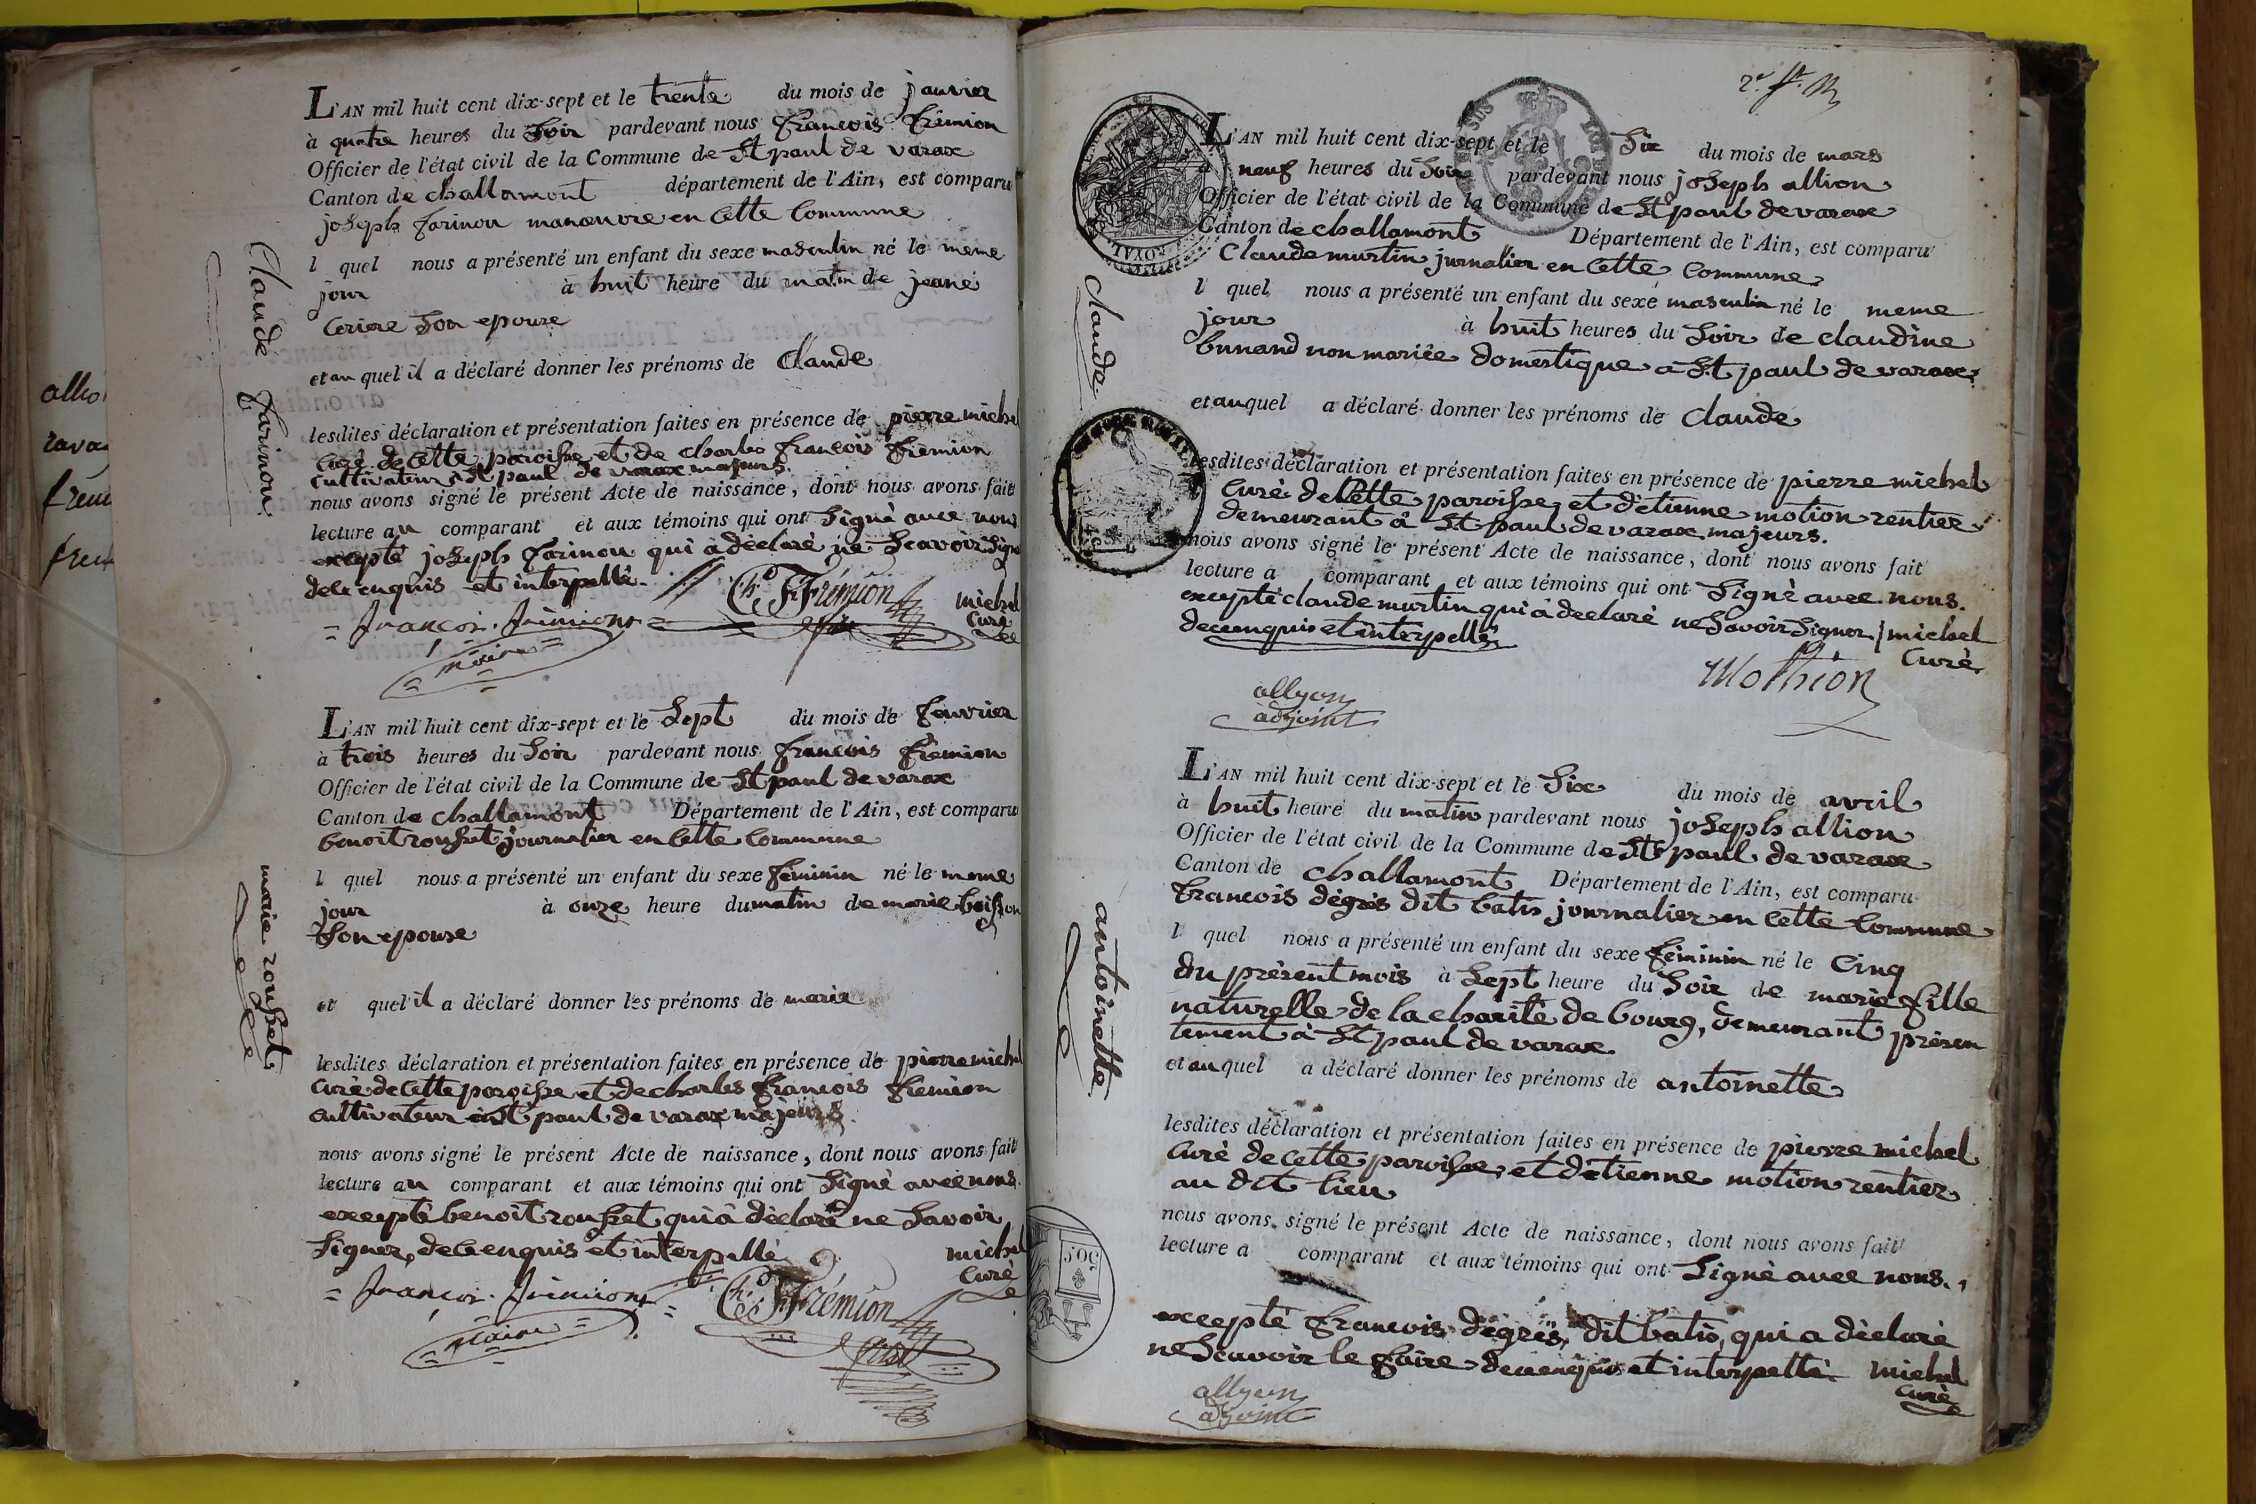 L'AN mil huit cent dix-sept et le trente du mois de janvier
à quatre heures du Soir pardevant nous françois frémion
Officier de l'état civil de la Commune de St paul de varax
Canton de challamont département de l'Ain, est comparu
joseph farinon manœuvre en cette commune
l quel nous a présenté un enfant du sexe masculin né le meme
jour à huit heure du matin de jeane
ceriere son epouse
et au quel il a déclaré donner les prénoms de Claude
lesdites déclaration et présentation faites en présence de pierre michel
curé de cette paroisse et de charles françois frémion
cultivateur à St paul de varax majeurs.
nous avons signé le présent Acte de naissance, dont nous avons fait
lecture au comparant et aux témoins qui ont Signé avec nous
excepté joseph farinon qui à déclaré ne Scavoir Signe
de ce enquis et interpellé.
Claude farinon
françois frémion
maire
Ch. F. Frémion
michel
curé
L'AN mil huit cent dix-sept et le Sept du mois de fevrier
à trois heures du Soir pardevant nous françois frémion
Officier de l'état civil de la Commune de St paul de varax
Canton de challamont Département de l'Ain, est comparu
benoit rousset journalier en cette commune
l quel nous a présenté un enfant du sexe féminin né le meme
jour à onze heure du matin de marie boisson
Son epouse
et quel il a déclaré donner les prénoms de marie
lesdites déclaration et présentation faites en présence de pierre michel
curé de cette paroisse et de charles françois frémion
cultivateur à St paul de varax majeurs
nous avons signé le présent Acte de naissance, dont nous avons fait
lecture au comparant et aux témoins qui ont Signé avec nous
excepté benoit rousset qui à déclaré ne Savoir
Signer, de ce enquis et interpellé
marie rousset
françois frémion
maire
Ch. F. Frémion
michel
curé
L'AN mil huit cent dix-sept et le Six du mois de mars
à neuf heures du Soir pardevant nous joseph allion
Officier de l'état civil de la Commune de St paul de varax
Canton de challamont Département de l'Ain, est comparu
Claude murtin jurnalier en cette commune
l quel nous a présenté un enfant du sexe masculin né le meme
jour à huit heures du Soir de claudine
bunand non mariée domestique à St paul de varax
et au quel a déclaré donner les prénoms de claude
lesdites déclaration et présentation faites en présence de pierre michel
curé de cette paroisse, et d'etienne motion rentier
demeurant à St paul de varax, majeurs.
nous avons signé le présent Acte de naissance, dont nous avons fait
lecture a comparant et aux témoins qui ont Signé avec nous.
excepté claude murtin qui à déclaré ne Savoir Signer
de ce enquis et interpellé
claude
michel
curé
Mothion
allyon
adjoint
L'AN mil huit cent dix-sept et le Six du mois de avril
à huit heure du matin pardevant nous joseph allion
Officier de l'état civil de la Commune de St paul de varax
Canton de challamont Département de l'Ain, est comparu
françois dégrés dit batis journalier en cette commune
l quel nous a présenté un enfant du sexe féminin né le cinq
du présent mois à Sept heure du Soir de marie fille
naturelle de la charité de bourg, demeurant présen
tement à St paul de varax
et au quel a déclaré donner les prénoms de antoinette
lesdites déclaration et présentation faites en présence de pierre michel
curé de cette paroisse, et d'etienne motion rentier
au dit lieu
nous avons signé le présent Acte de naissance, dont nous avons fait
lecture a comparant et aux témoins qui ont Signé avec nous.
excepté françois dégrés, dit batis, qui a déclaré
ne Scavoir le faire de ce enquis et interpellé
antoinette
michel
curé
allyon
adjoint